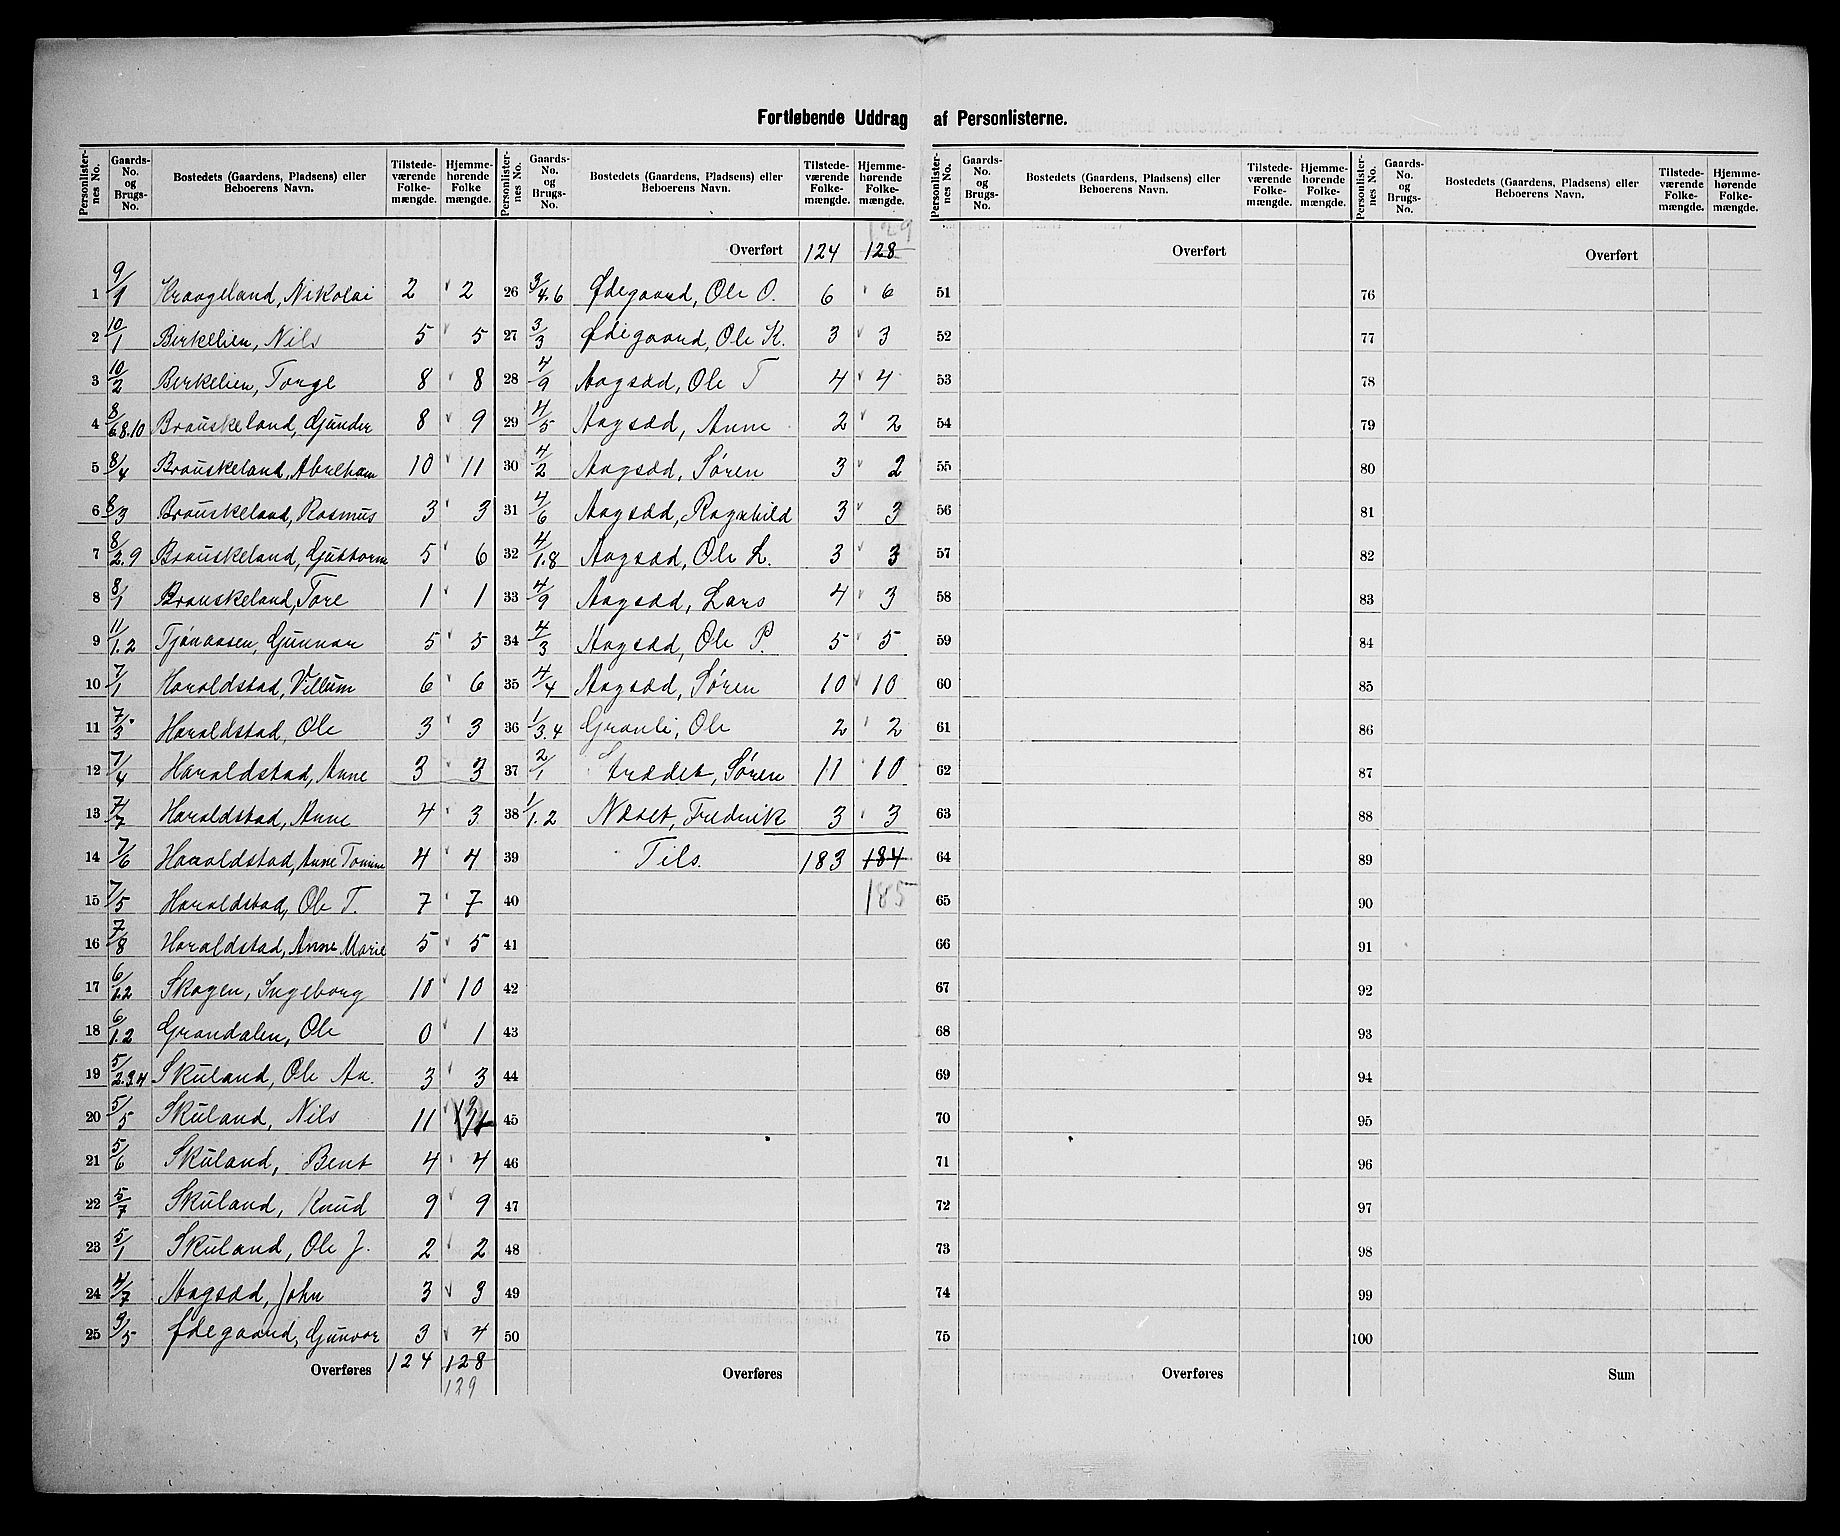 Fortløbende Uddrag af Personlisterne.
Personlister-nes No. Gaards-No. og Brugs-No. Bostedets (Gaardens, Pladsens) eller Beboerens Navn. Tilstede-værende Folke-mængde. Hjemme-hørende Folke mængde.
1 9/1 Kraageland, Nikolai 2 2
2 10/1 Birkelien, Nils 5 5
3 10/2 Birkelien, Torge 8 8
4 8/6.8.10 Brauskeland, Gunder 8 9
5 8/4 Brauskeland, Abraham 10 11
6 8/3 Brauskeland, Rasmus 3 3
7 8/2.9 Brauskeland, Guttorm 5 6
8 8/1 Brauskeland, Tore 1 1
9 11/1.2 Tjønaasen, Gunnar 5 5
10 7/1 Haraldstad, Villum 6 6
11 7/3 Haraldstad, Ole 3 3
12 7/4 Haraldstad, Anne 3 3
13 7/7 Haraldstad, Anne 4 3
14 7/6 Haraldstad, Anne Tomine 4 4
15 7/5 Haraldstad, Ole T. 7 7
16 7/8 Haraldstad, Anne Marie 5 5
17 6/1.2 Skogen, Ingeborg 10 10
18 6/1.2 Grandalen, Ole 0 1
19 5/2.3.4 Skuland, Ole Aa. 3 3
20 5/5 Skuland, Nils 11
21 5/6 Skuland, Bent 4 4
22 5/7 Skuland, Knud 9 9
23 5/1 Skuland, Ole J. 2 2
24 4/7 Aagsæd, John 3 3
25 3/5 Ødegaard, Gunvor 3 4
Overføres 124 128
129
Personlister-nes No. Gaards-No. og Brugs-No. Bostedets (Gaardens, Pladsens) eller Beboerens Navn. Tilstede-værende Folke-mængde. Hjemme-hørende Folke-mængde.
129
Overført 124 128
26 3/4.6 Ødegaard, Ole O. 6 6
27 3/3 Ødegaard, Ole K. 3 3
28 4/9 Aagsæd, Ole T 4 4
29 4/5 Aagsæd, Anne 2 2
30 4/2 Aagsæd, Søren 3 2
31 4/6 Aagsæd, Ragnhild 3 3
32 4/1.8 Aagsæd, Ole L. 3 3
33 4/9 Aagsæd, Lars 4 3
34 4/3 Aagsæd, Ole P. 5 5
35 4/4 Aagsæd, Søren 10 10
36 1/3.4 Granli, Ole 2 2
37 2/1 Strædet, Søren 11 10
38 1/1.2 Næset, Fredrik 3 3
39 Tils. 183 184
40 185
41
42
43
44
45
46
47
48
49
50
Overføres
Personlister-nes No. Gaards-No. og Brugs-No. Bostedets (Gaardens, Pladsens) eller Beboerens Navn. Tilstede-værende Folke-mængde. Hjemme-hørende Folke-mængde.
Overført
51
52
53
54
55
56
57
58
59
60
61
62
63
64
65
66
67
68
69
70
71
72
73
74
75
Overføres
Personlister-nes No. Gaards-No. og Brugs-No. Bostedets (Gaardens, Pladsens) eller Beboerens Navn. Tilstede-værende Folke-mængde. Hjemme-hørende Folke-mængde.
Overført
76
77
78
79
80
81
82
83
84
85
86
87
88
89
90
91
92
93
94
95
96
97
98
99
100
Sum